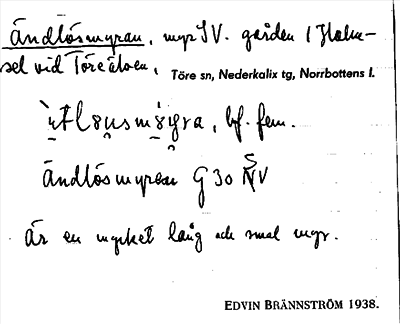 Ändlösmyran, myr SV. gården 1 Holm-
sel vid Töreälven, Töre sn, Nederkalix tg, Norrbottens l.
bf. fem.
Ändlösmyran G 30 SV
Är en mycket lång och smal myr.
EDVIN BRÄNNSTRÖM 1938.